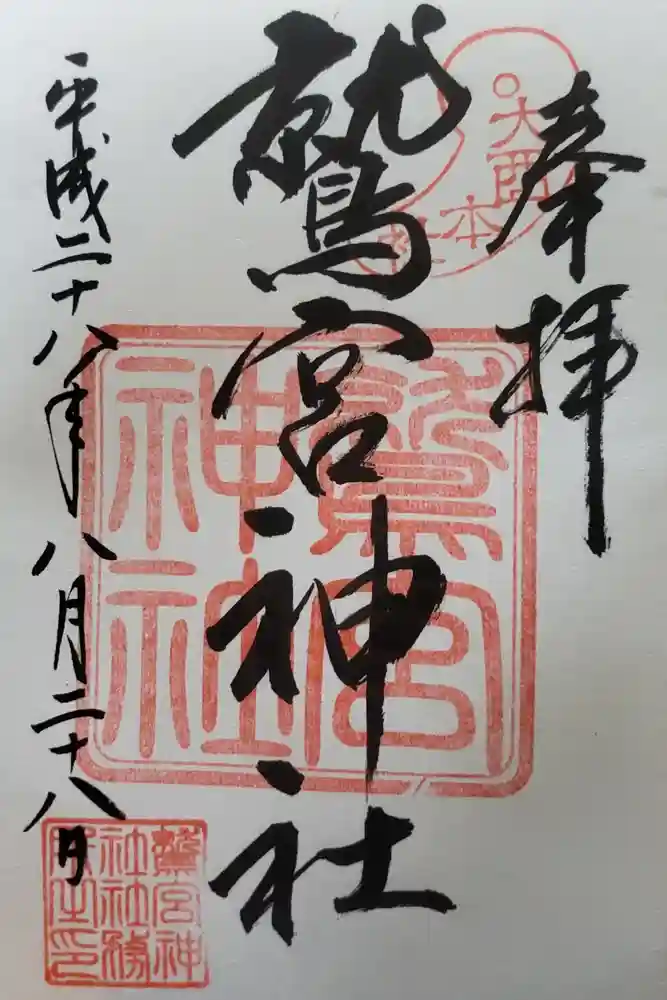 奉拝
大酉本社
鷲宮神社
鷲宮神社
平成二十八年八月二十八日
鷲宮神社社務所之印